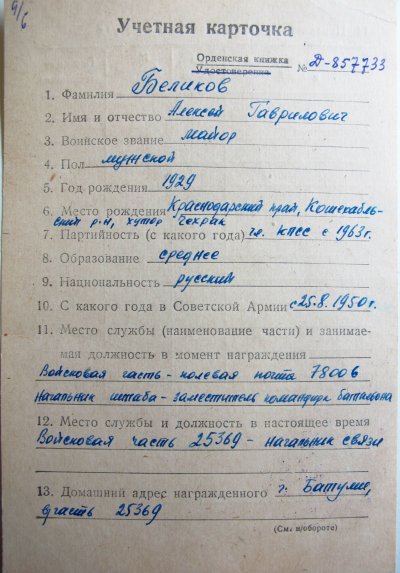 9/б
Учетная карточка
Орденская книжка
Удостоверение № Д-857733
1. Фамилия Беликов
2. Имя и отчество Алексей Гаврилович
3. Воинское звание майор
4. Пол мужской
5. Год рождения 1929
6. Место рождения Краснодарский край, Кошехабль-
ский р-н, хутор Чехрак
7. Партийность (с какого года) чл. КПСС с 1963 г.
8. Образование среднее
9. Национальность русский
10. С какого года в Советской Армии с 25.8.1950 г.
11. Место службы (наименование части) и занимае-
мая должность в момент награждения
Войсковая часть - полевая почта 78006
начальник штаба - заместитель командира батальона
12. Место службы и должность в настоящее время
Войсковая часть 25369 - начальник связи
13. Домашний адрес награжденного г. Батуми,
в/часть 25369
(См. н/обороте)